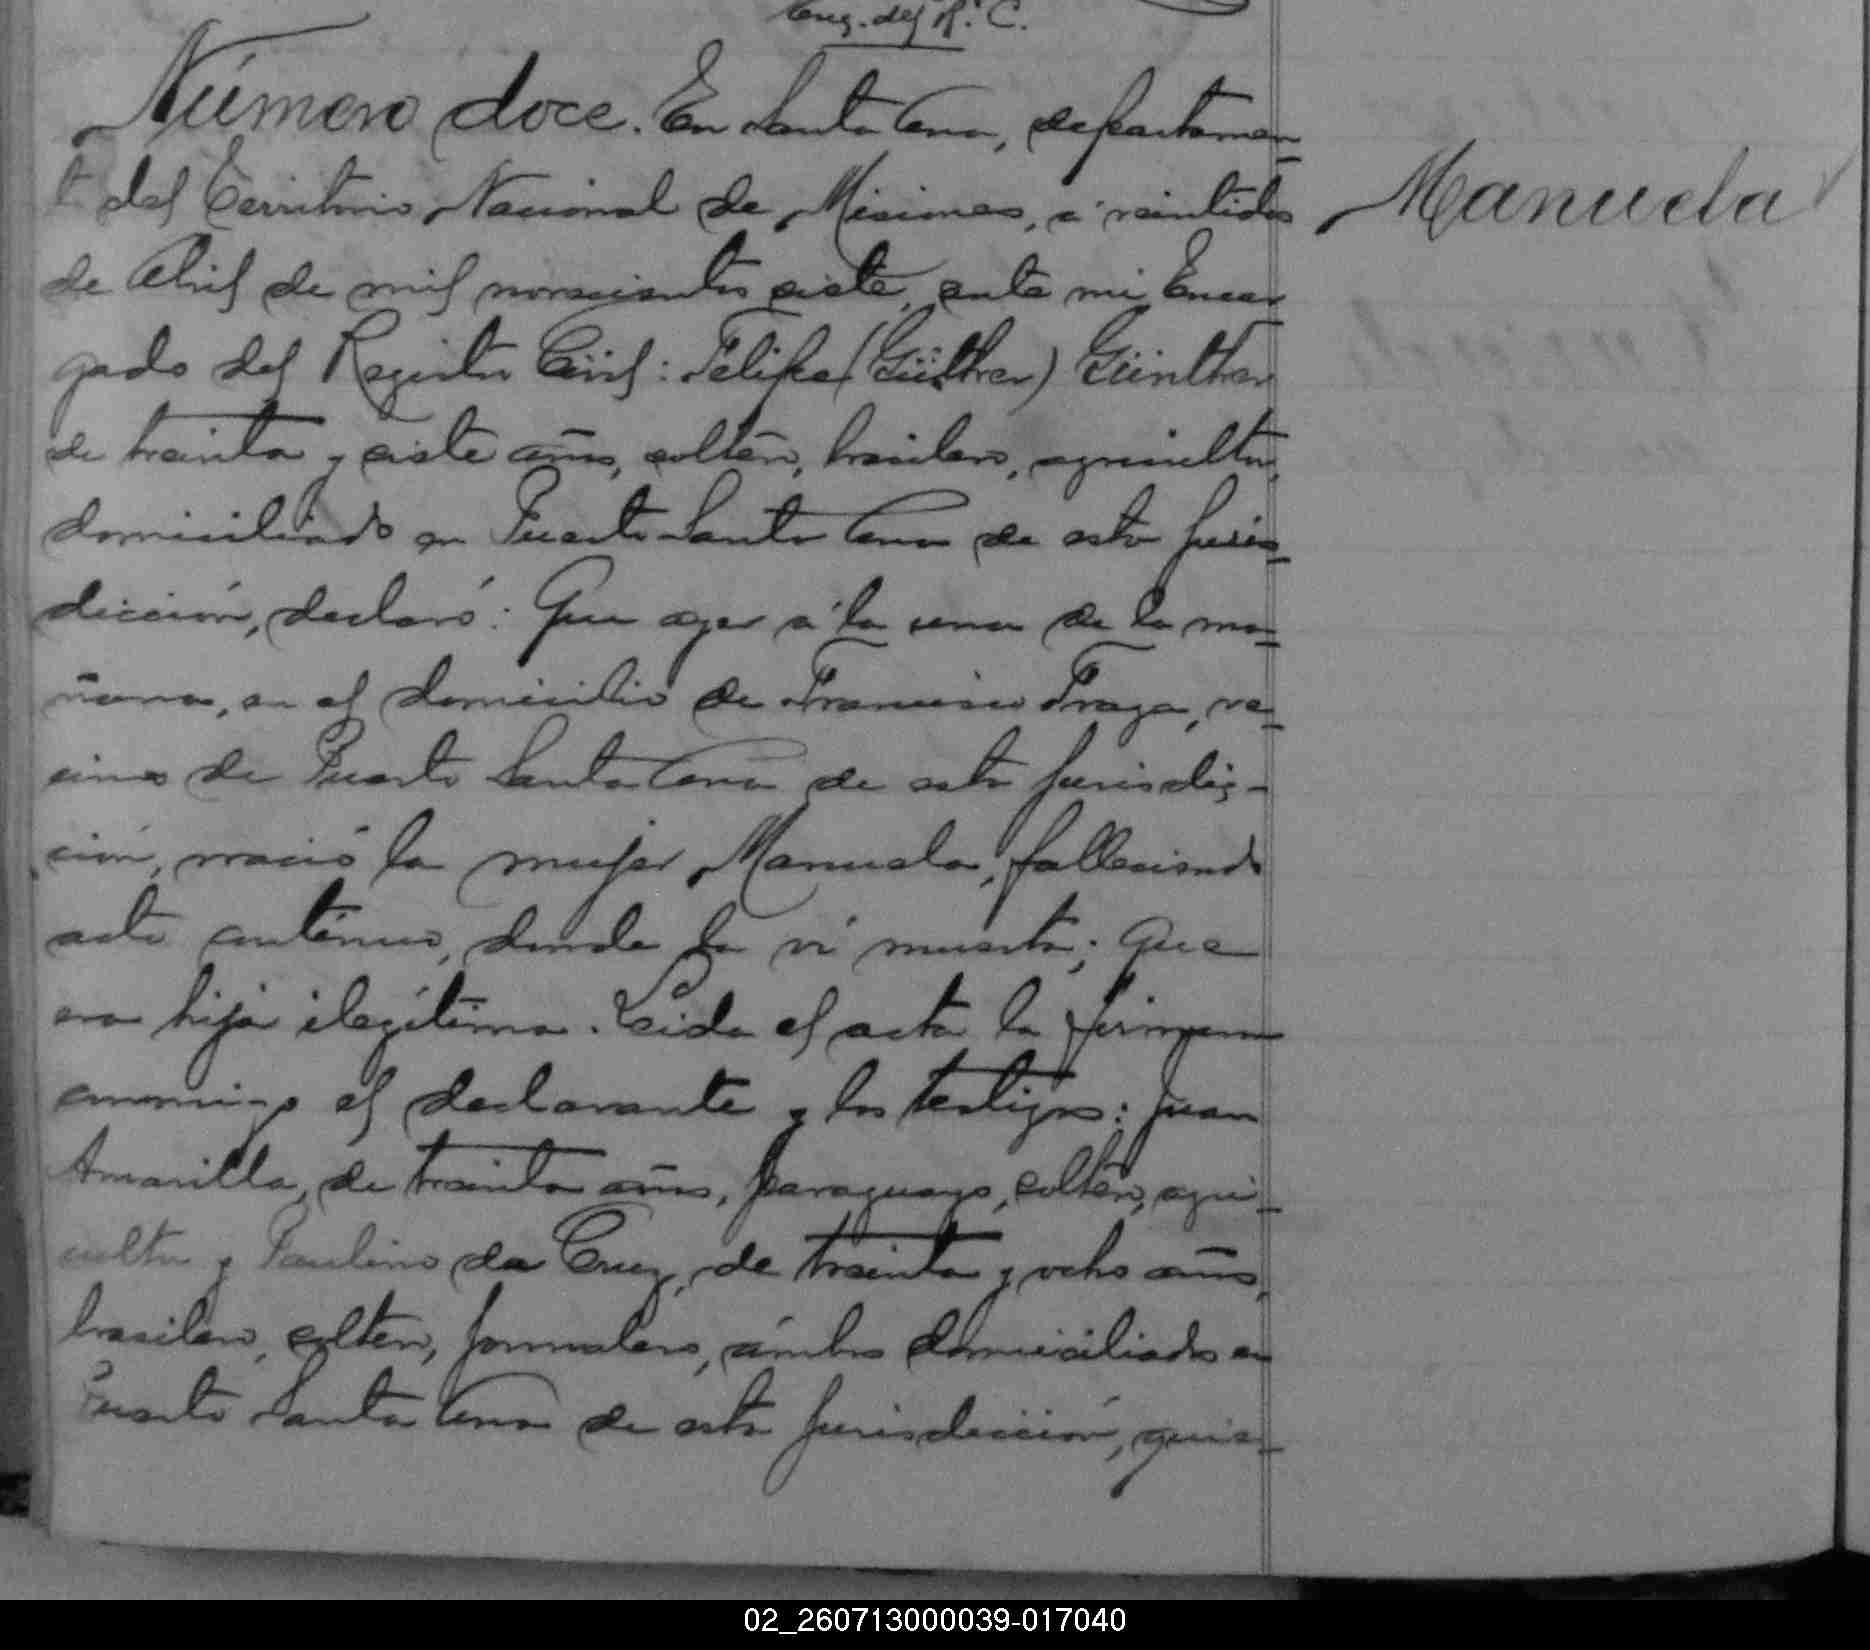 Enc. del R. C.
Número doce. En Santa Ana, departamen-
to del Territorio Nacional de Misiones, á veintidos
de Abril de mil novecientos siete, ante mi, Encar
gado del Registro Civil: Felipe (Güther) Günther
de treinta y siete años, soltero, brasilero, agricultor,
domiciliado en Puerto Santa Ana de esta juris-
dicción, declaró: Que ayer á la una de la ma-
ñana, en el domicilio de Francisco Fraga, ve-
cino de Puerto Santa Ana de esta jurisdic-
ción, nació la mujer Manuela, falleciendo
acto contínuo, donde la ví muerta; que
era hija ilegítima. Leida el acta la firman
conmigo el declarante y los testigos: Juan
Amarilla, de treinta años, paraguayo, soltero, agri-
cultor y Paulino da Cruz, de treinta y ocho años,
brasilero, soltero, jornalero, ámbos domiciliados en
Puerto Santa Ana de esta jurisdicción, quie-
Manuela
02_260713000039-017040